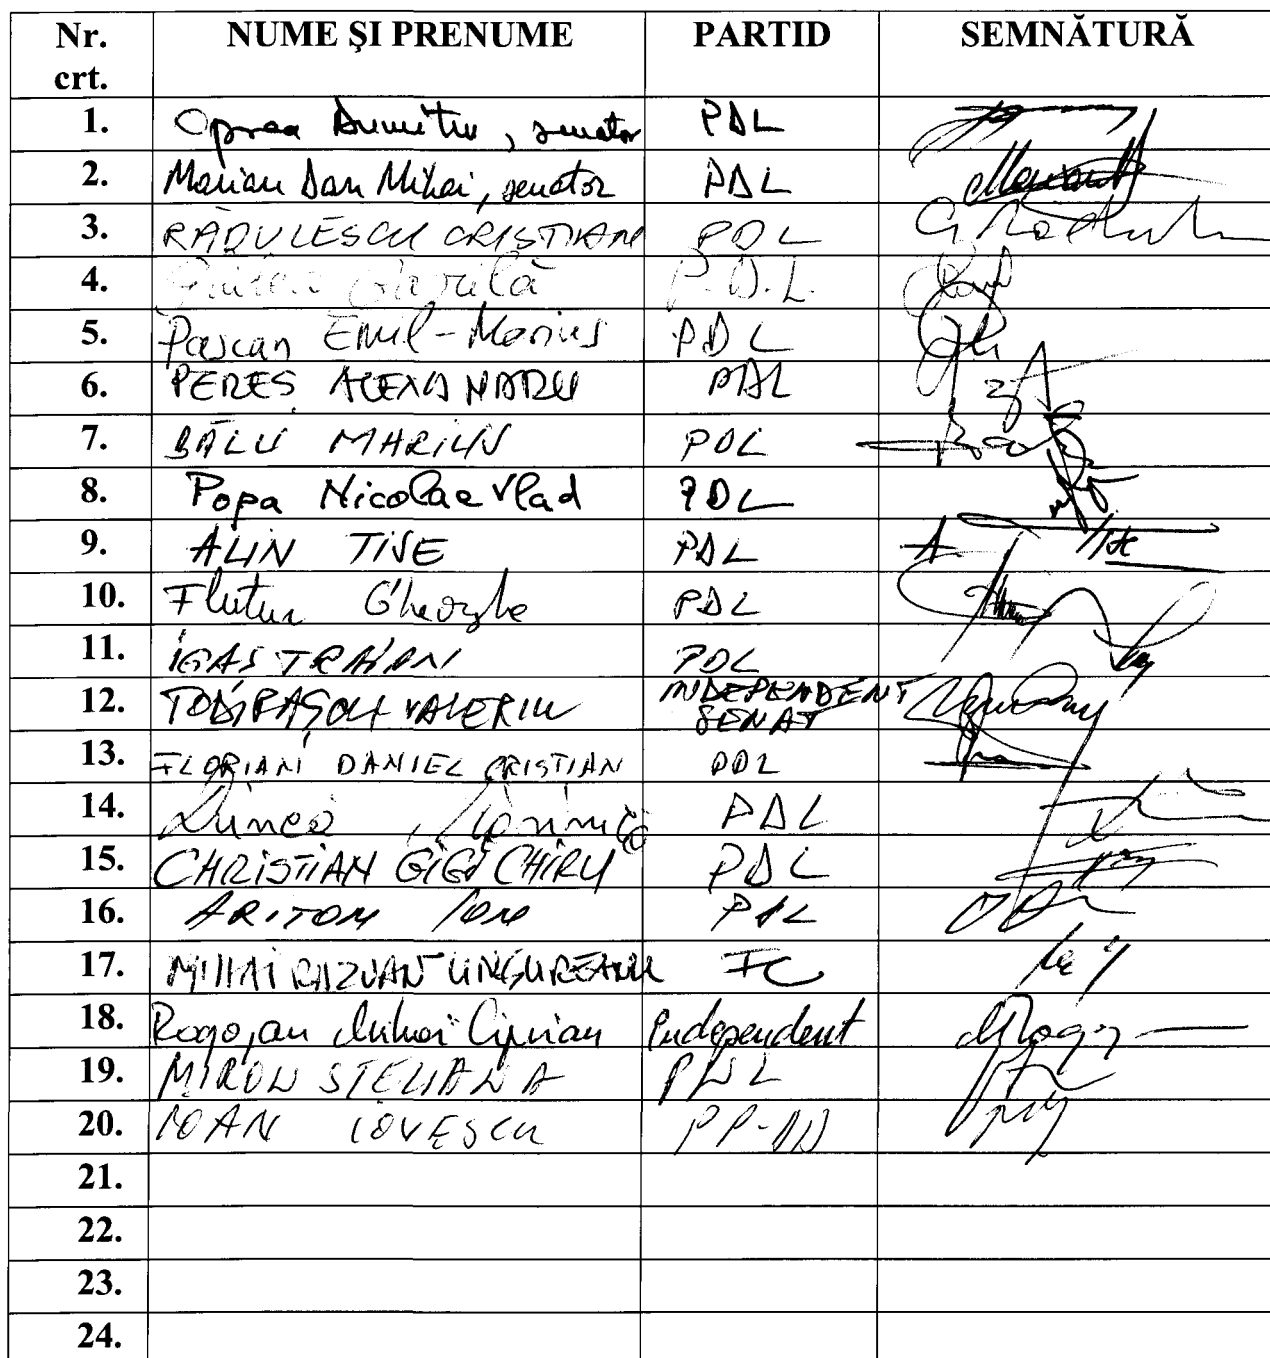 Nr. crt. NUME ŞI PRENUME PARTID SEMNĂTURĂ
1. Oprea Dumitru, senator PDL
2. Marian Dan Mihai, senator PDL
3. RĂDULESCU CRISTIAN PDL
4. Ghiță P.D.L.
5. Pașcan Emil-Marius PDL
6. PEREȘ ALEXANDRU PDL
7. BĂLU MARIUS PDL
8. Popa Nicolae Vlad PDL
9. ALIN TIȘE PDL
10. Flutur Gheorghe PDL
11. IGAȘ TRAIAN PDL
12. TODIRAȘCU VALERIU INDEPENDENT SENAT
13. FLORIAN DANIEL CRISTIAN PDL
14. Dincă Mărinică PDL
15. CHRISTIAN GIGI CHIRU PDL
16. ARITON ION PDL
17. MIHAI RAZVAN UNGUREANU FC
18. Rogojan Mihai Ciprian Independent
19. MIRON STELIANA PNL
20. IOAN IOVESCU PP-DD
21.
22.
23.
24.